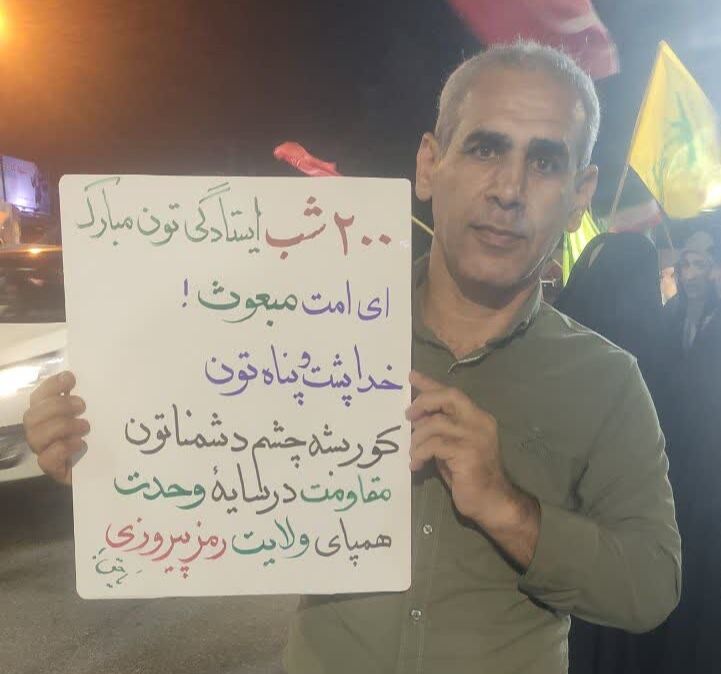 ۲۰۰ شب ایستادگی تون مبارک
ای امت مبعوث!
خدا پشت و پناه تون
کور بشه چشم دشمناتون
مقاومت در سایهٔ وحدت
همپای ولایت رمز پیروزی